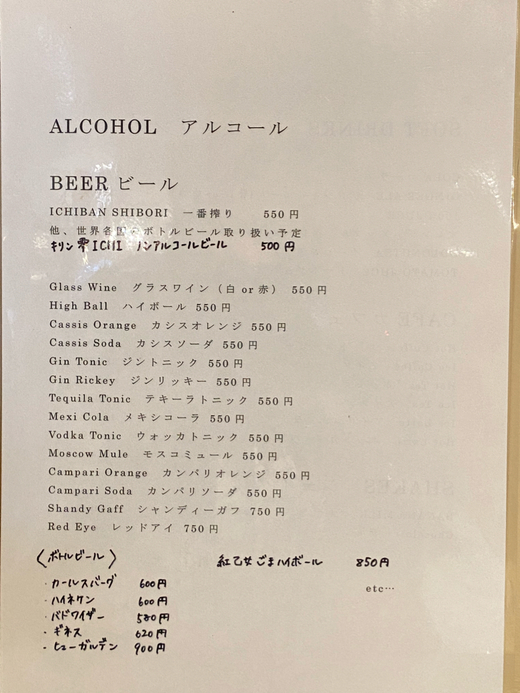 ALCOHOL アルコール
BEER ビール
ICHIBAN SHIBORI 一番搾り 550円
他、世界各国のボトルビール取り扱い予定
キリン 零ICHI ノンアルコールビール 500円
Glass Wine グラスワイン（白 or 赤） 550円
High Ball ハイボール 550円
Cassis Orange カシスオレンジ 550円
Cassis Soda カシスソーダ 550円
Gin Tonic ジントニック 550円
Gin Rickey ジンリッキー 550円
Tequila Tonic テキーラトニック 550円
Mexi Cola メキシコーラ 550円
Vodka Tonic ウォッカトニック 550円
Moscow Mule モスコミュール 550円
Campari Orange カンパリオレンジ 550円
Campari Soda カンパリソーダ 550円
Shandy Gaff シャンディーガフ 750円
Red Eye レッドアイ 750円
〈ボトルビール〉
・カールスバーグ 600円
・ハイネケン 600円
・バドワイザー 580円
・ギネス 620円
・ヒューガルデン 900円
紅乙女ごまハイボール 850円
etc…